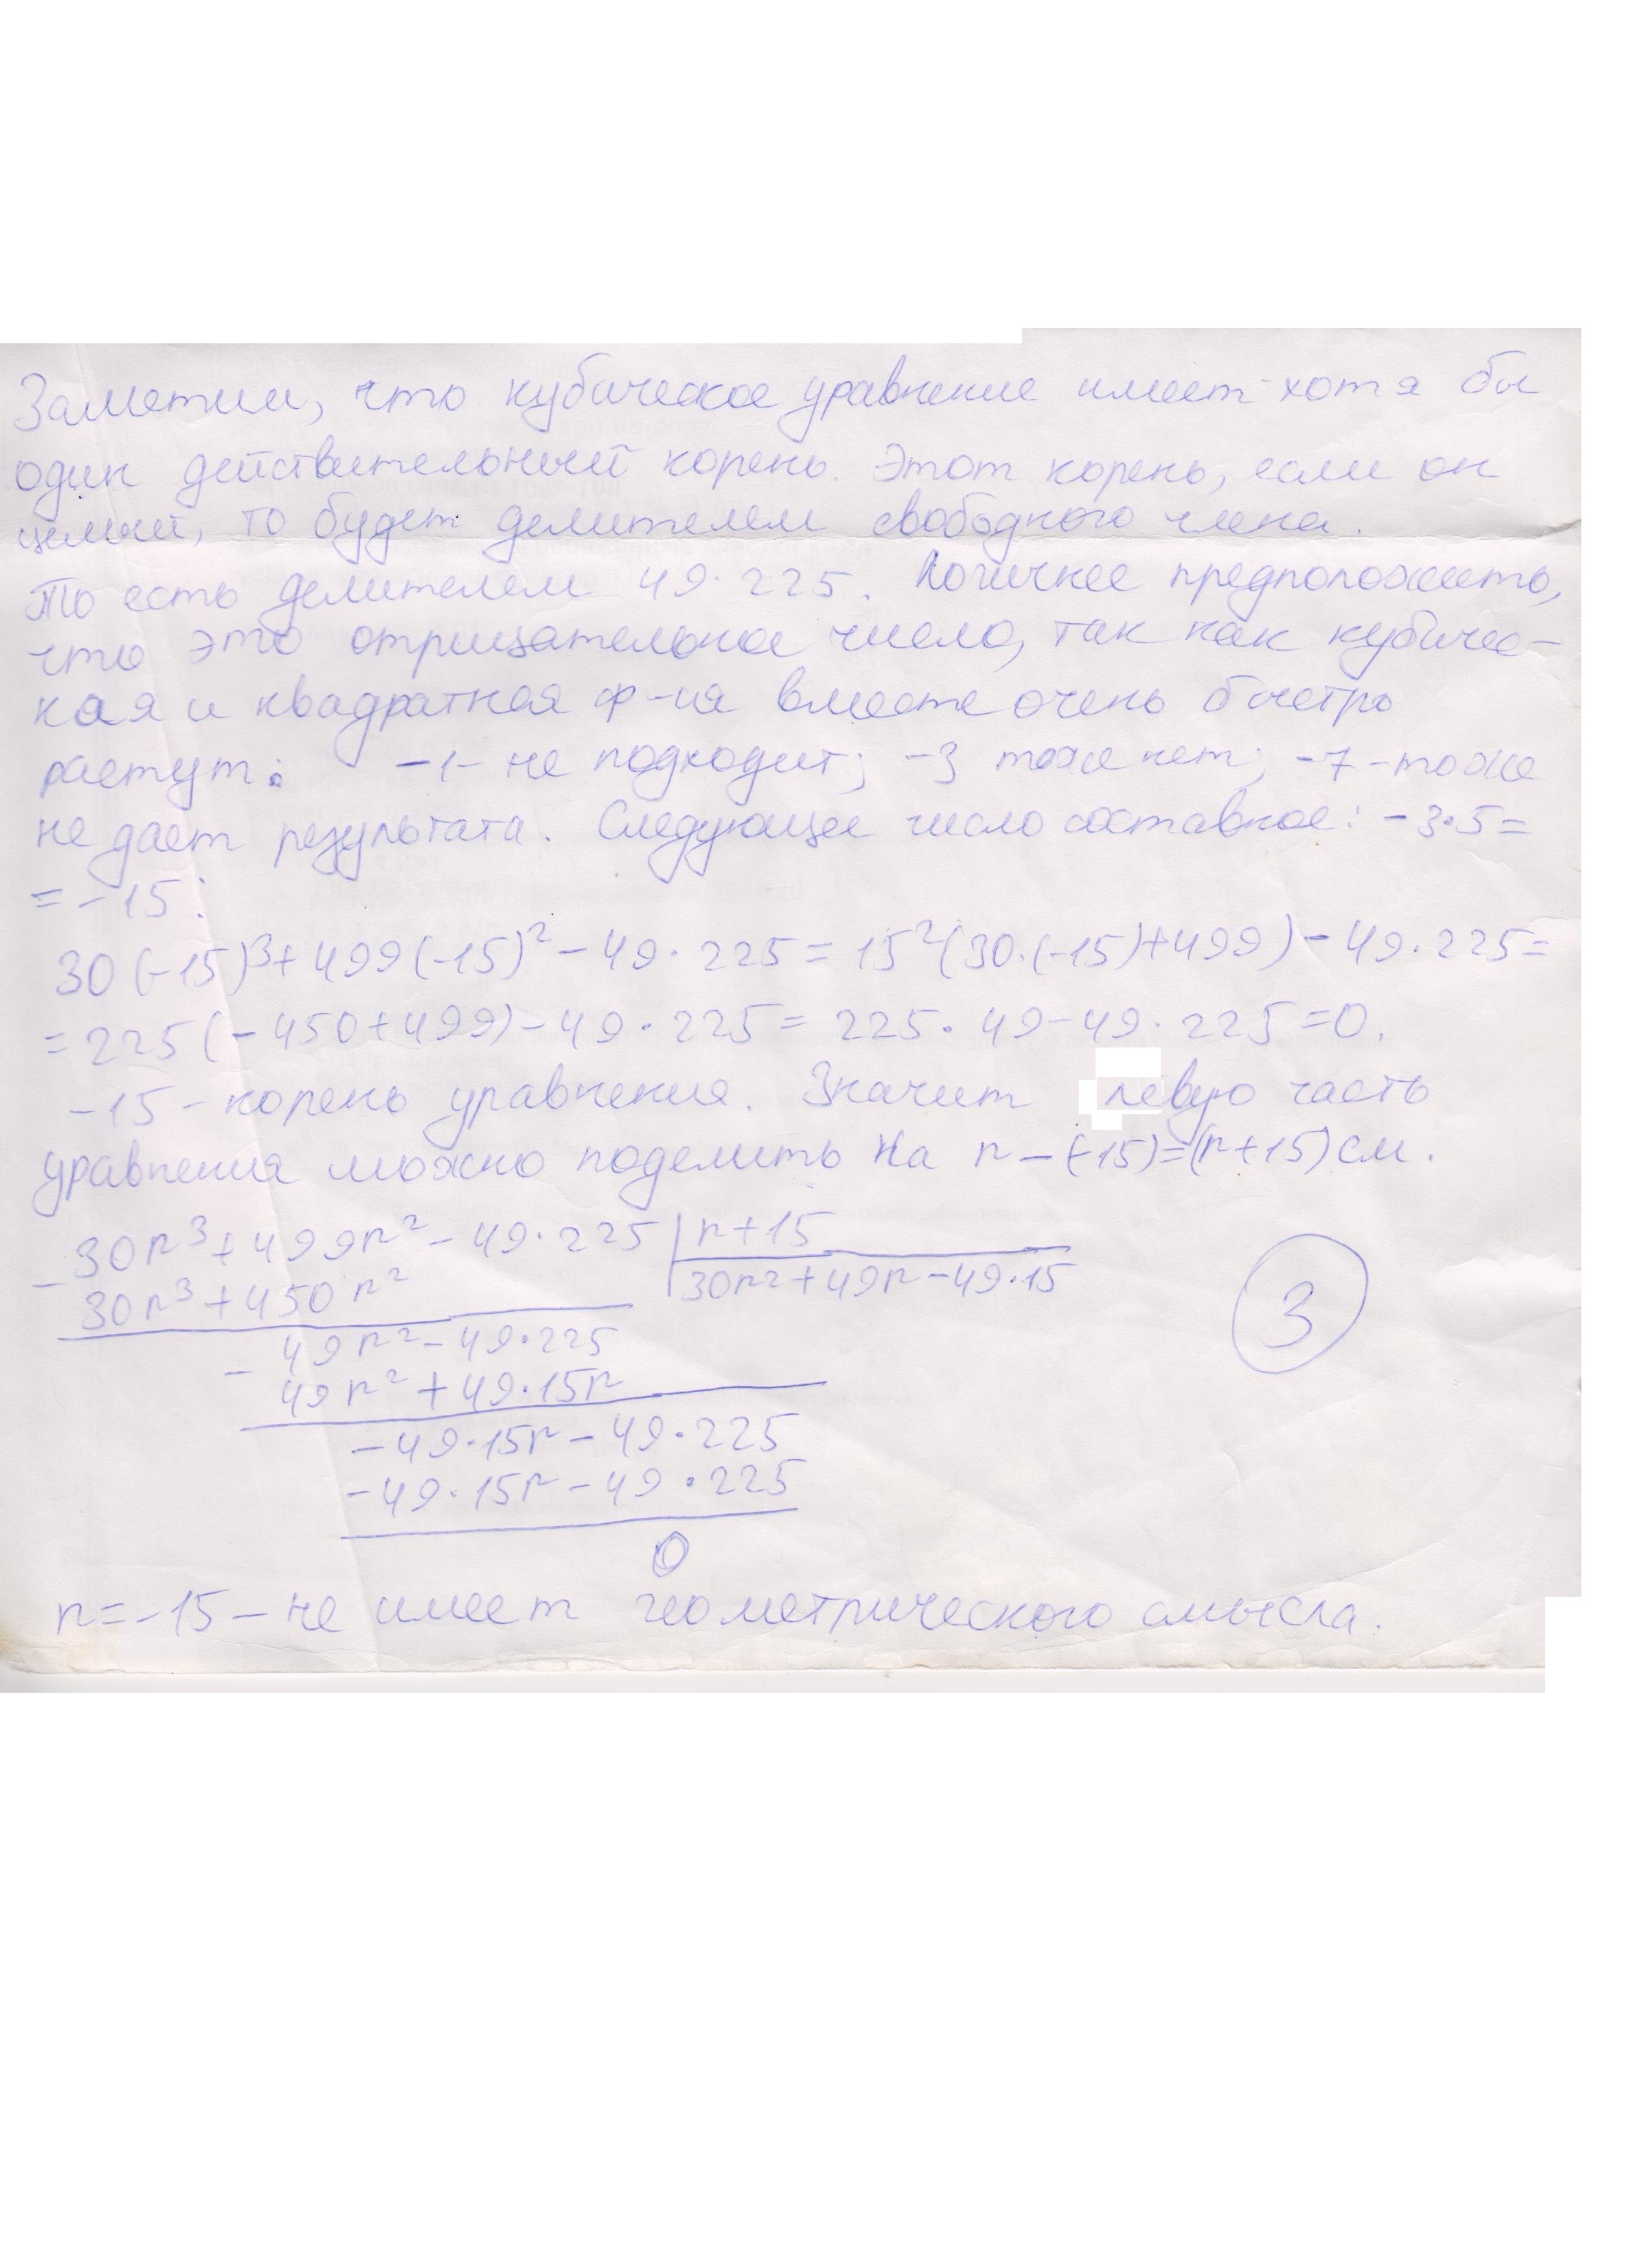 Заметим, что кубическое уравнение имеет хотя бы
один действительный корень. Этот корень, если он
целый, то будет делителем свободного члена.
То есть делителем 49·225. Логичнее предположить,
что это отрицательное число, так как кубичес-
кая и квадратная ф-ия вместе очень быстро
растут: -1- не подходит; -3 тоже нет; -7-тоже
не дает результата. Следующее число составное: -3·5=
=-15:
30(-15)³+499(-15)²-49·225=15²(30·(-15)+499)-49·225=
=225(-450+499)-49·225=225·49-49·225=0.
-15-корень уравнения. Значит левую часть
уравнения можно поделить на r-(-15)=(r+15)см.
30r³+499r²-49·225 | r+15
- 30r³+450r² 30r²+49r-49·15
49r²-49·225
- 49r²+49·15r
-49·15r-49·225
-49·15r-49·225
0
3
r=-15-не имеет геометрического смысла.